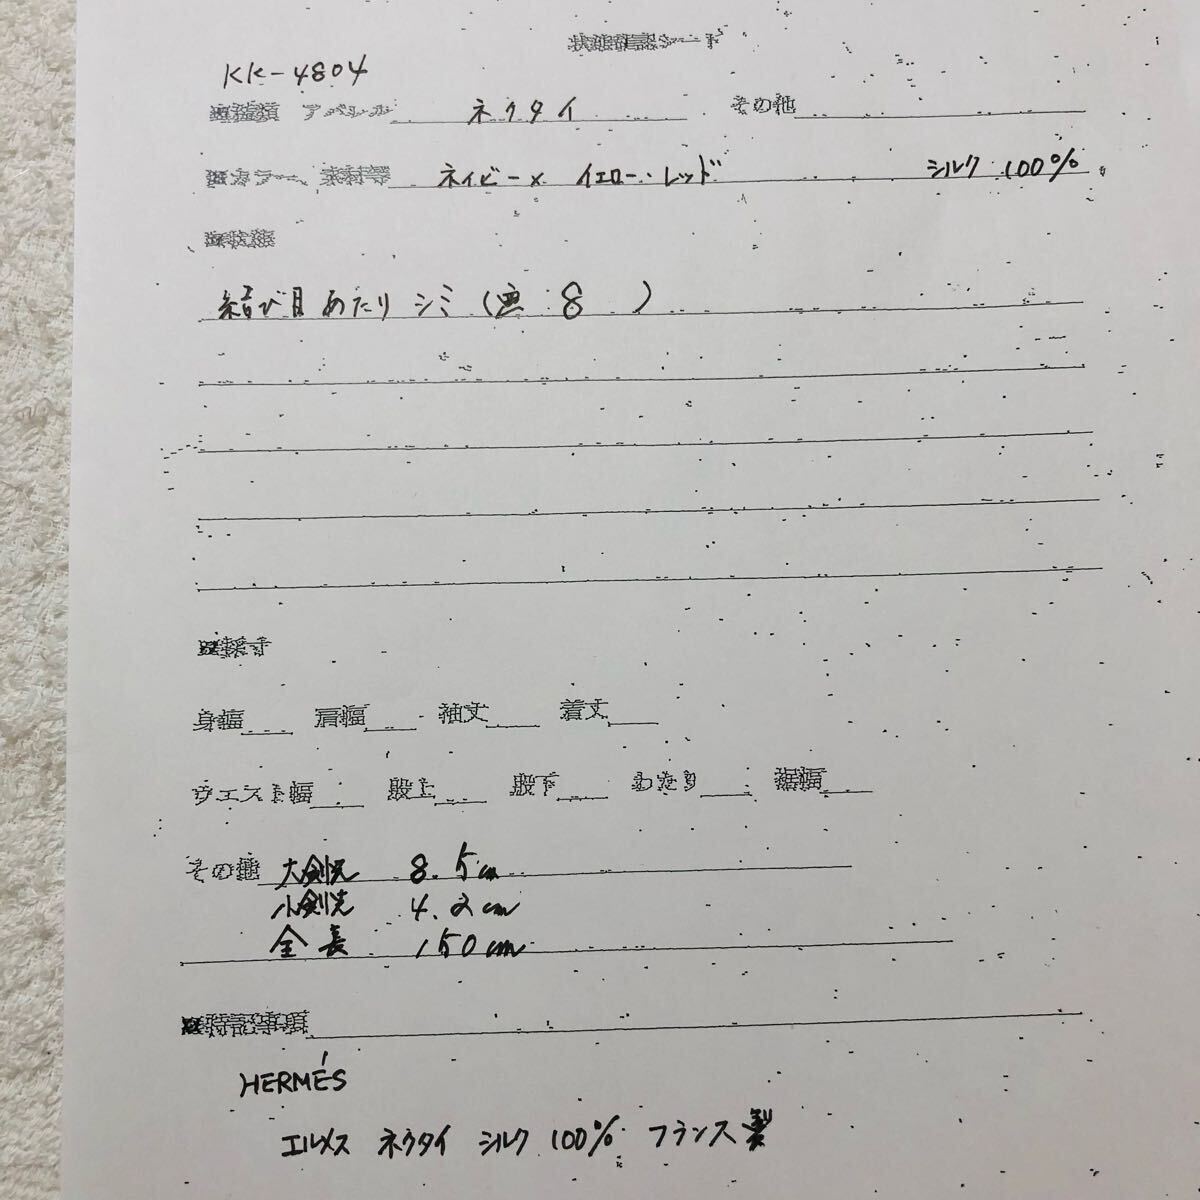 状態確認シート
KK-4804
■種類 アパレル ネクタイ その他
■カラー、素材等 ネイビー× イエロー・レッド シルク 100%
■状態
結び目あたり シミ(画 8 )
■採寸
身幅 肩幅 袖丈 着丈
ウエスト幅 股上 股下 わたり 裾幅
その他 大剣先 8.5cm
小剣先 4.2cm
全長 150cm
■特記事項
HERMÉS
エルメス ネクタイ シルク 100% フランス製